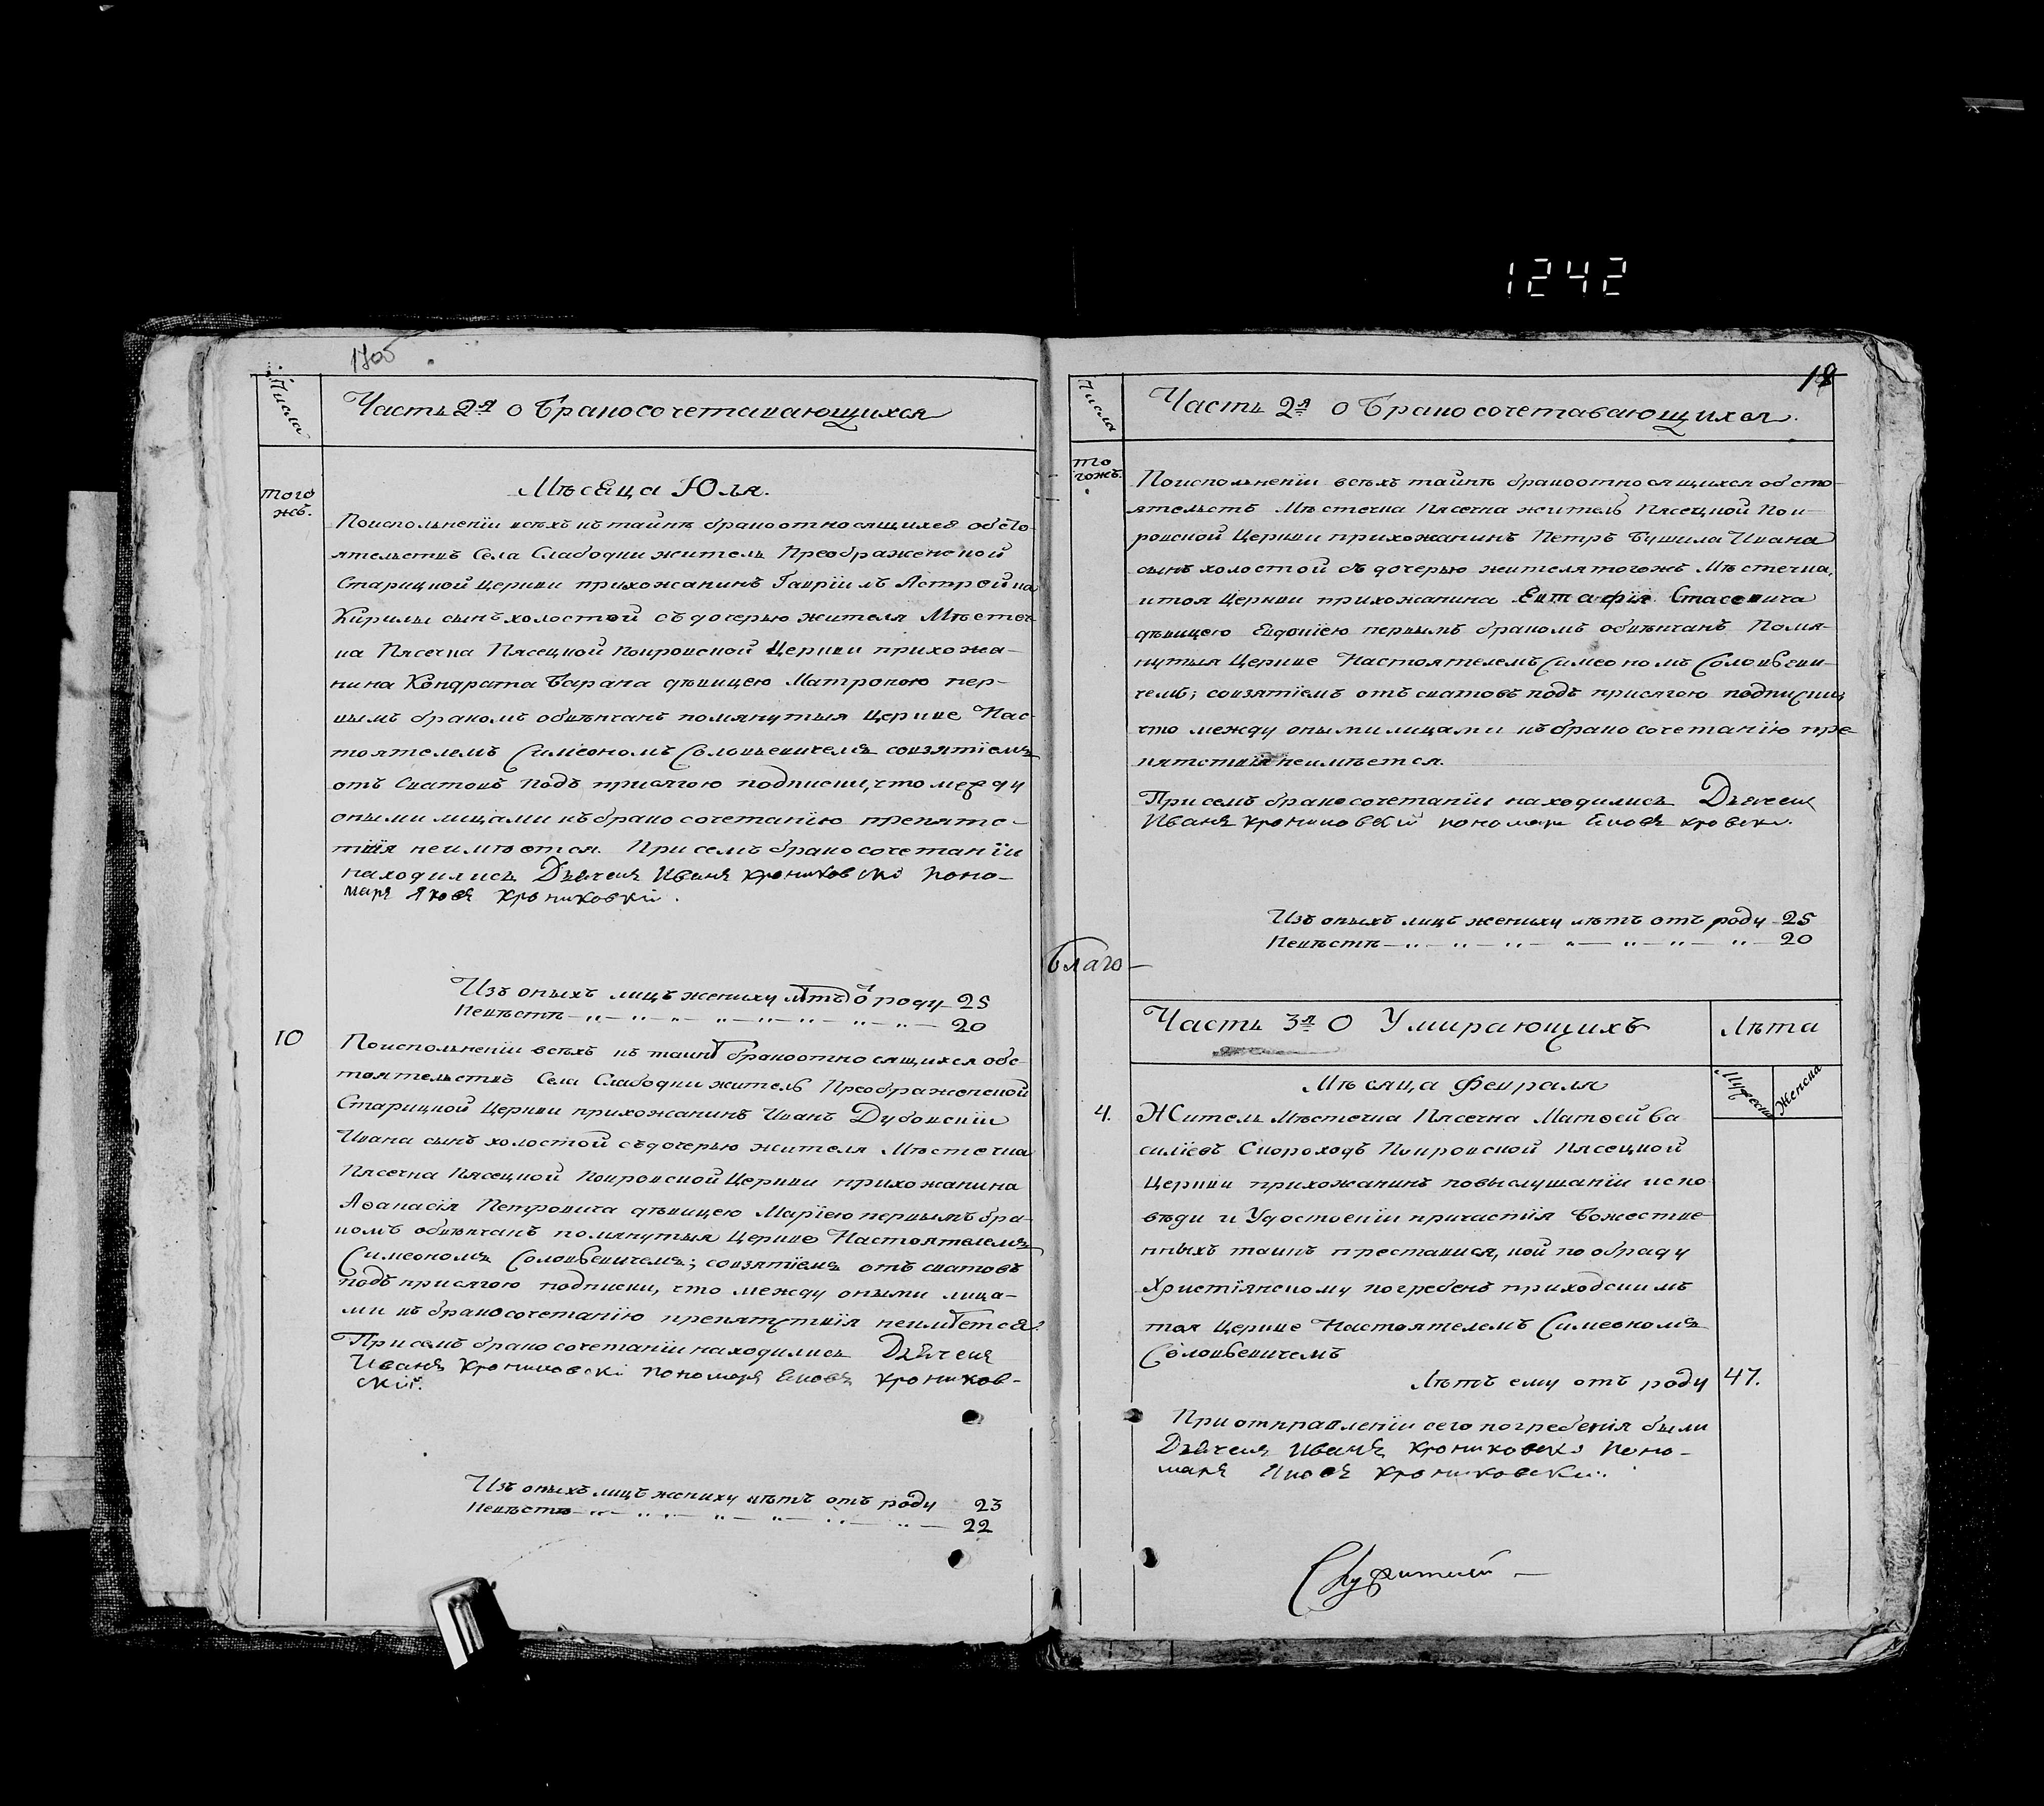 1242
1705
Числа
Часть 2я о Бракосочетавающихся
Мѣсеца Юля.
того
жъ.
Поисполненіи всѣхъ къ таинѣ бракоотносящихся обсто-
ятельствъ Села Слабодки житель Преображенской
Старицкой Церкви прихожанинъ Гавріилъ Астрейка
Кирилы сынъ холостой съ дочерью жителя Мѣстеч-
ка Пясечна Пясецкой Покровской Церкви прихожа-
нина Кондрата Барана дѣвицею Матроною пер-
вымъ бракомъ обвѣнчанъ помянутыя Церкве Нас-
тоятелемъ Симеономъ Соловьевичемъ совзятіемъ
отъ Сватовъ подъ присягою подписки, что между
оными лицами къ бракосочетанію препятс-
твія неимѣется. При семъ бракосочетаніи
находились Дьячекъ Иванъ Крониковскі Поно-
маръ Яковъ Крониковкій.
Изъ оныхъ лицъ жениху лѣтъ о роду 25
Невѣстѣ — „ — „ — „ — „ — „ — „ — „ — „ — 20
10
Поисполненіи всѣхъ къ таинѣ бракоотносящихся обс-
тоятельствъ Села Слабодки житель Преображенской
Старицкой Церкви прихожанинъ Иванъ Дубовскіи
Ивана сынъ холостой съдочерью жителя Мѣстечка
Пясечна Пясецкой Покровской Церкви прихожанина
Аѳанасія Петровича дѣвицею Маріею первымъ бра-
комъ обвѣнчанъ помянутыя Церкве Настоятелемъ
Симеономъ Соловьевичемъ; совзятіемъ отъ сватовъ
подъ присягою подписки, что между оными лица-
ми къ бракосочетанію препятствія неимѣется.
При семъ бракосочетаніи находились Дьячекъ
Иванъ Крониковскі Пономаръ Яковъ Кроников-
скій.
Изъ оныхъ лицъ жениху лѣтъ отъ роду 23
Невѣстѣ — „ — „ — „ — „ — „ — „ — „ — 22
18
Числа
Часть 2я о Бракосочетавающихся.
то
гожъ.
Поисполненіи всѣхъ таинѣ бракоотносящихся обсто-
ятельствъ Мѣстечка Пясечна житель Пясецкой Пок-
ровской Церкви прихожанинъ Петръ Бушила Ивана
сынъ холостой съ дочерью жителя тогожъ Мѣстечка,
итоя Церкви прихожанина Евтафія Стасевича
дѣвицею Евдокіею первымъ бракомъ обвѣнчанъ Помя-
нутыя Церкве Настоятелемъ Симеономъ Соловьеви-
чемъ; совзятіемъ отъ сватовъ подъ присягою подписки,
что между оными лицами къ бракосочетанію пре-
пятствія неимѣется.
При семъ бракосочетаніи находились Дьячекъ
Иванъ Крониковскій пономаръ Яковъ
Изъ оныхъ лицъ жениху лѣтъ отъ роду 25
Невѣстѣ — „ — „ — „ — „ — „ — „ — „ — 20
Благо-
Часть 3я О Умирающихъ
Лѣта
Мѣсяца Февраля
Мужеска
Женска
4.
Житель Мѣстечка Пясечна Матѳей Ва
силіевъ Скороходъ Покровской Пясецкой
Церкви прихожанинъ повыслушаніи испо-
вѣди и Удостоеніи причастія Божестве-
нныхъ таинъ преставися, кой по обряду
Христіянскому погребенъ приходскимъ
тоя Церкве Настоятелемъ Симеономъ
Соловьевичемъ
Лѣтъ ему отъ роду 47.
При отправленіи сего погребенія были
Дьячекъ Иванъ Крониковскі Поно-
маръ Яковъ Крониковскіи.